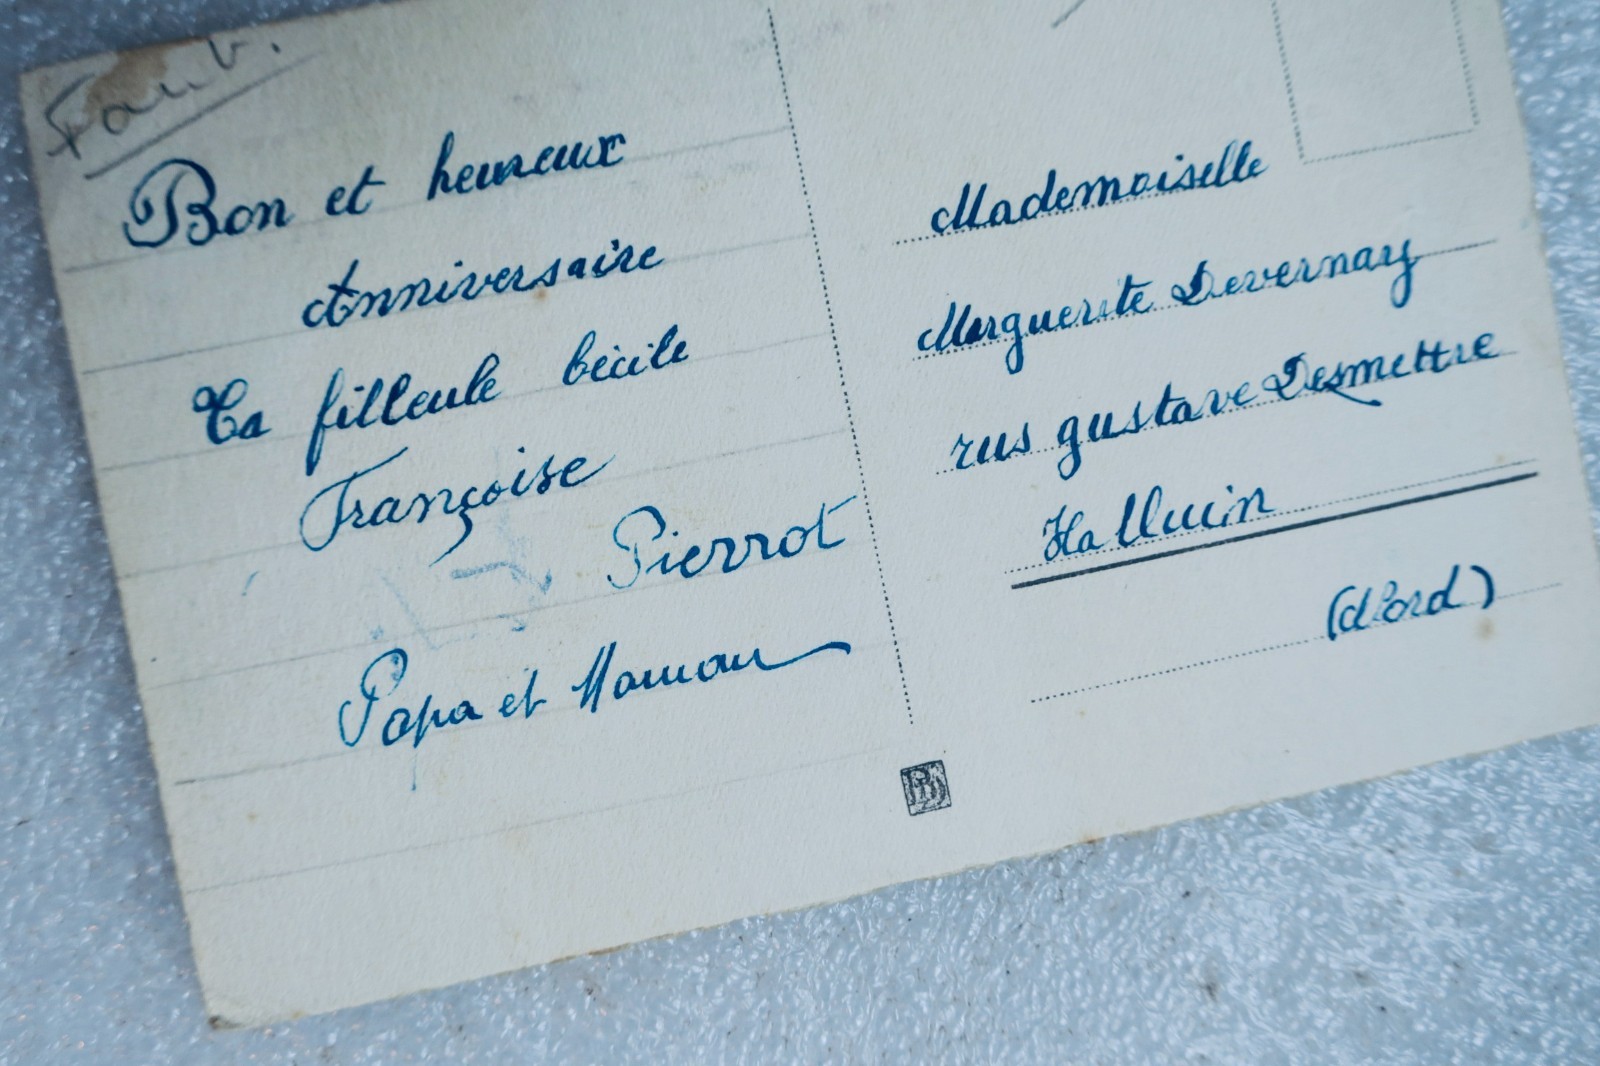 Bon et heureux
Anniversaire
Ta filleule Cécile
Françoise
Pierrot
Papa et Maman
Mademoiselle
Marguerite Devernay
rue gustave Desmettre
Halluin
(Nord)